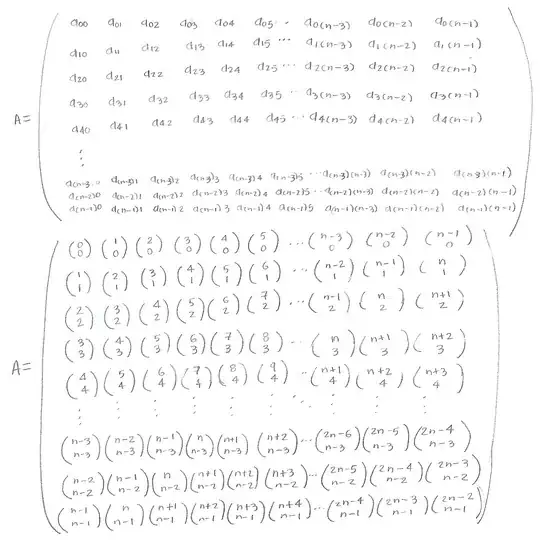 a00 a01 a02 a03 a04 a05 ... a0(n-3) a0(n-2) a0(n-1)
a10 a11 a12 a13 a14 a15 ... a1(n-3) a1(n-2) a1(n-1)
a20 a21 a22 a23 a24 a25 ... a2(n-3) a2(n-2) a2(n-1)
a30 a31 a32 a33 a34 a35 ... a3(n-3) a3(n-2) a3(n-1)
A= a40 a41 a42 a43 a44 a45 ... a4(n-3) a4(n-2) a4(n-1)
⋮
a(n-3)0 a(n-3)1 a(n-3)2 a(n-3)3 a(n-3)4 a(n-3)5 ... a(n-3)(n-3) a(n-3)(n-2) a(n-3)(n-1)
a(n-2)0 a(n-2)1 a(n-2)2 a(n-2)3 a(n-2)4 a(n-2)5 ... a(n-2)(n-3) a(n-2)(n-2) a(n-2)(n-1)
a(n-1)0 a(n-1)1 a(n-1)2 a(n-1)3 a(n-1)4 a(n-1)5 ... a(n-1)(n-3) a(n-1)(n-2) a(n-1)(n-1)
(0 0) (1 0) (2 0) (3 0) (4 0) (5 0) ... (n-3 0) (n-2 0) (n-1 0)
(1 1) (2 1) (3 1) (4 1) (5 1) (6 1) ... (n-2 1) (n-1 1) (n 1)
(2 2) (3 2) (4 2) (5 2) (6 2) (7 2) ... (n-1 2) (n 2) (n+1 2)
(3 3) (4 3) (5 3) (6 3) (7 3) (8 3) ... (n 3) (n+1 3) (n+2 3)
A= (4 4) (5 4) (6 4) (7 4) (8 4) (9 4) ... (n+1 4) (n+2 4) (n+3 4)
⋮ ⋮ ⋮ ⋮ ⋮ ⋮ ⋮ ⋮ ⋮
(n-3 n-3) (n-2 n-3) (n-1 n-3) (n n-3) (n+1 n-3) (n+2 n-3) ... (2n-6 n-3) (2n-5 n-3) (2n-4 n-3)
(n-2 n-2) (n-1 n-2) (n n-2) (n+1 n-2) (n+2 n-2) (n+3 n-2) ... (2n-5 n-2) (2n-4 n-2) (2n-3 n-2)
(n-1 n-1) (n n-1) (n+1 n-1) (n+2 n-1) (n+3 n-1) (n+4 n-1) ... (2n-4 n-1) (2n-3 n-1) (2n-2 n-1)